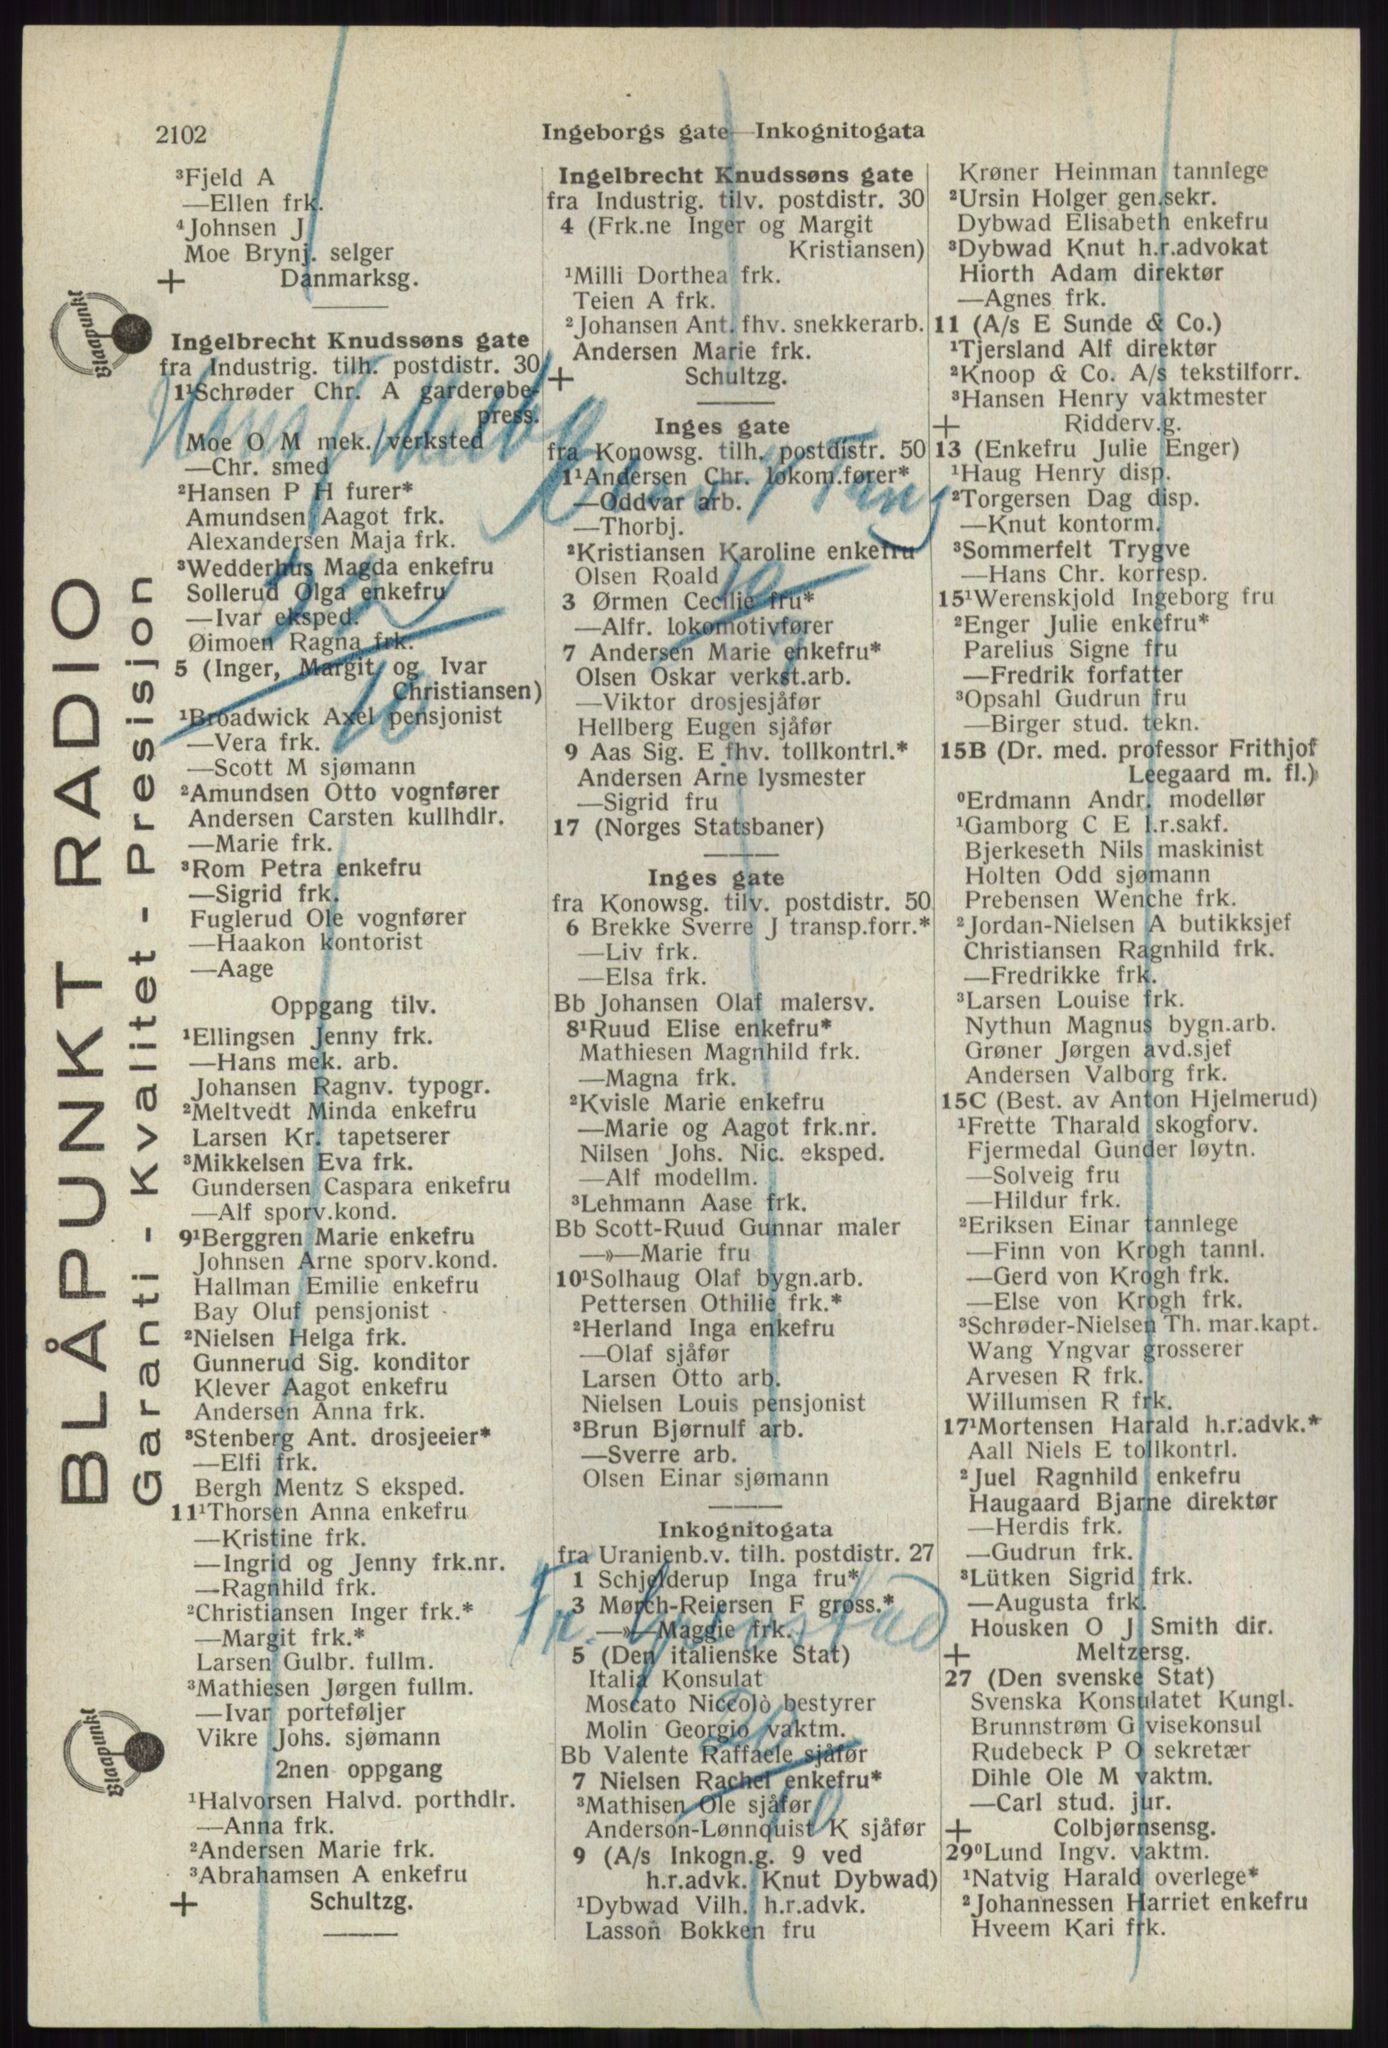 2102
Ingeborgs gate—Inkognitogata
³Fjeld A
—Ellen frk.
⁴Johnsen J
Moe Brynj. selger
+ Danmarksg.
Ingelbrecht Knudssøns gate
fra Industrig. tilh. postdistr. 30
1¹Schrøder Chr. A garderobe-
press.
Moe O M mek. verksted
—Chr. smed
²Hansen P H furer*
Amundsen Aagot frk.
Alexandersen Maja frk.
³Wedderhus Magda enkefru
Sollerud Olga enkefru
—Ivar eksped.
Øimoen Ragna frk.
5 (Inger, Margit og Ivar
Christiansen)
¹Broadwick Axel pensjonist
—Vera frk.
—Scott M sjømann
²Amundsen Otto vognfører
Andersen Carsten kullhdlr.
—Marie frk.
³Rom Petra enkefru
—Sigrid frk.
Fuglerud Ole vognfører
—Haakon kontorist
—Aage
Oppgang tilv.
¹Ellingsen Jenny frk.
—Hans mek. arb.
Johansen Ragnv. typogr.
²Meltvedt Minda enkefru
Larsen Kr. tapetserer
³Mikkelsen Eva frk.
Gundersen Caspara enkefru
—Alf sporv.kond.
9¹Berggren Marie enkefru
Johnsen Arne sporv.kond.
Hallman Emilie enkefru
Bay Oluf pensjonist
²Nielsen Helga frk.
Gunnerud Sig. konditor
Klever Aagot enkefru
Andersen Anna frk.
³Stenberg Ant. drosjeeier*
—Elfi frk.
Bergh Mentz S eksped.
11¹Thorsen Anna enkefru
—Kristine frk.
—Ingrid og Jenny frk.nr.
—Ragnhild frk.
²Christiansen Inger frk.*
—Margit frk.*
Larsen Gulbr. fullm.
³Mathiesen Jørgen fullm.
—Ivar porteføljer
Vikre Johs. sjømann
2nen oppgang
¹Halvorsen Halvd. porthdlr.
—Anna frk.
²Andersen Marie frk.
³Abrahamsen A enkefru
+ Schultzg.
Ingelbrecht Knudssøns gate
fra Industrig. tilv. postdistr. 30
4 (Frk.ne Inger og Margit
Kristiansen)
¹Milli Dorthea frk.
Teien A frk.
²Johansen Ant. fhv. snekkerarb.
Andersen Marie frk.
+ Schultzg.
Inges gate
fra Konowsg. tilh. postdistr. 50
1¹Andersen Chr. lokom.fører*
—Oddvar arb.
—Thorbj.
²Kristiansen Karoline enkefru
Olsen Roald
3 Ørmen Cecilie fru*
—Alfr. lokomotivfører
7 Andersen Marie enkefru*
Olsen Oskar verkst.arb.
—Viktor drosjesjåfør
Hellberg Eugen sjåfør
9 Aas Sig. E fhv. tollkontrl.*
Andersen Arne lysmester
—Sigrid fru
17 (Norges Statsbaner)
Inges gate
fra Konowsg. tilv. postdistr. 50
6 Brekke Sverre J transp.forr.*
—Liv frk.
—Elsa frk.
Bb Johansen Olaf malersv.
8¹Ruud Elise enkefru*
Mathiesen Magnhild frk.
—Magna frk.
²Kvisle Marie enkefru
—Marie og Aagot frk.nr.
Nilsen Johs. Nic. eksped.
—Alf modellm.
³Lehmann Aase frk.
Bb Scott-Ruud Gunnar maler
—»—Marie fru
10¹Solhaug Olaf bygn.arb.
Pettersen Othilie frk.*
²Herland Inga enkefru
—Olaf sjåfør
Larsen Otto arb.
Nielsen Louis pensjonist
³Brun Bjørnulf arb.
—Sverre arb.
Olsen Einar sjømann
Inkognitogata
fra Uranienb.v. tilh. postdistr. 27
1 Schjelderup Inga fru*
3 Mørch-Reiersen F gross.*
—»—Maggie frk.
5 (Den italienske Stat)
Italia Konsulat
Moscato Niccolò bestyrer
Molin Georgio vaktm.
Bb Valente Raffaele sjåfør
7 Nielsen Rachel enkefru*
³Mathisen Ole sjåfør
Anderson-Lønnquist K sjåfør
9 (A/s Inkogn.g. 9 ved
h.r.advk. Knut Dybwad)
¹Dybwad Vilh. h.r.advk.
Lasson Bokken fru
Krøner Heinman tannlege
²Ursin Holger gen.sekr.
Dybwad Elisabeth enkefru
³Dybwad Knut h.r.advokat
Hiorth Adam direktør
—Agnes frk.
11 (A/s E Sunde & Co.)
¹Tjersland Alf direktør
²Knoop & Co. A/s tekstilforr.
³Hansen Henry vaktmester
+ Ridderv.g.
13 (Enkefru Julie Enger)
¹Haug Henry disp.
²Torgersen Dag disp.
—Knut kontorm.
³Sommerfelt Trygve
—Hans Chr. korresp.
15¹Werenskjold Ingeborg fru
²Enger Julie enkefru*
Parelius Signe fru
—Fredrik forfatter
³Opsahl Gudrun fru
—Birger stud. tekn.
15B (Dr. med. professor Frithjof
Leegaard m. fl.)
⁰Erdmann Andr. modellør
¹Gamborg C E l.r.sakf.
Bjerkeseth Nils maskinist
Holten Odd sjømann
Prebensen Wenche frk.
²Jordan-Nielsen A butikksjef
Christiansen Ragnhild frk.
—Fredrikke frk.
³Larsen Louise frk.
Nythun Magnus bygn.arb.
Grøner Jørgen avd.sjef
Andersen Valborg frk.
15C (Best. av Anton Hjelmerud)
¹Frette Tharald skogforv.
Fjermedal Gunder løytn.
—Solveig fru
—Hildur frk.
²Eriksen Einar tannlege
—Finn von Krogh tannl.
—Gerd von Krogh frk.
—Else von Krogh frk.
³Schrøder-Nielsen Th. mar.kapt.
Wang Yngvar grosserer
Arvesen R frk.
Willumsen R frk.
17¹Mortensen Harald h.r.advk.*
Aall Niels E tollkontrl.
²Juel Ragnhild enkefru
Haugaard Bjarne direktør
—Herdis frk.
—Gudrun frk.
³Lütken Sigrid frk.
—Augusta frk.
Housken O J Smith dir.
+ Meltzersg.
27 (Den svenske Stat)
Svenska Konsulatet Kungl.
Brunnstrøm G visekonsul
Rudebeck P O sekretær
Dihle Ole M vaktm.
—Carl stud. jur.
+ Colbjørnsensg.
29⁰Lund Ingv. vaktm.
¹Natvig Harald overlege*
²Johannessen Harriet enkefru
Hveem Kari frk.
BLÅPUNKT RADIO
Garanti - Kvalitet - Presisjon
Blaapunkt
Blaapunkt